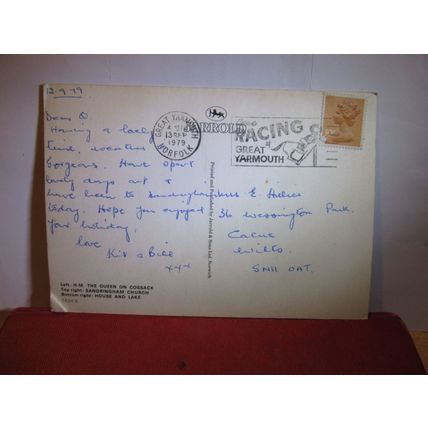 12.9.79
Dear D.
Having a lovely
time, weather
gorgeous. Have spent
lovely days out &
have been to Sandringham E. Hales
today. Hope you enjoyed
your holiday.
love
Kit & Bill
xxx
36 Wessington Park.
Calne
Wilts.
SN11 0AT.
GREAT YARMOUTH
13 SEP
1979
NORFOLK
JARROLD
RACING
GREAT
YARMOUTH
Printed and Published by Jarrold & Sons Ltd, Norwich
Left: H.M. THE QUEEN ON COSSACK
Top right: SANDRINGHAM CHURCH
Bottom right: HOUSE AND LAKE